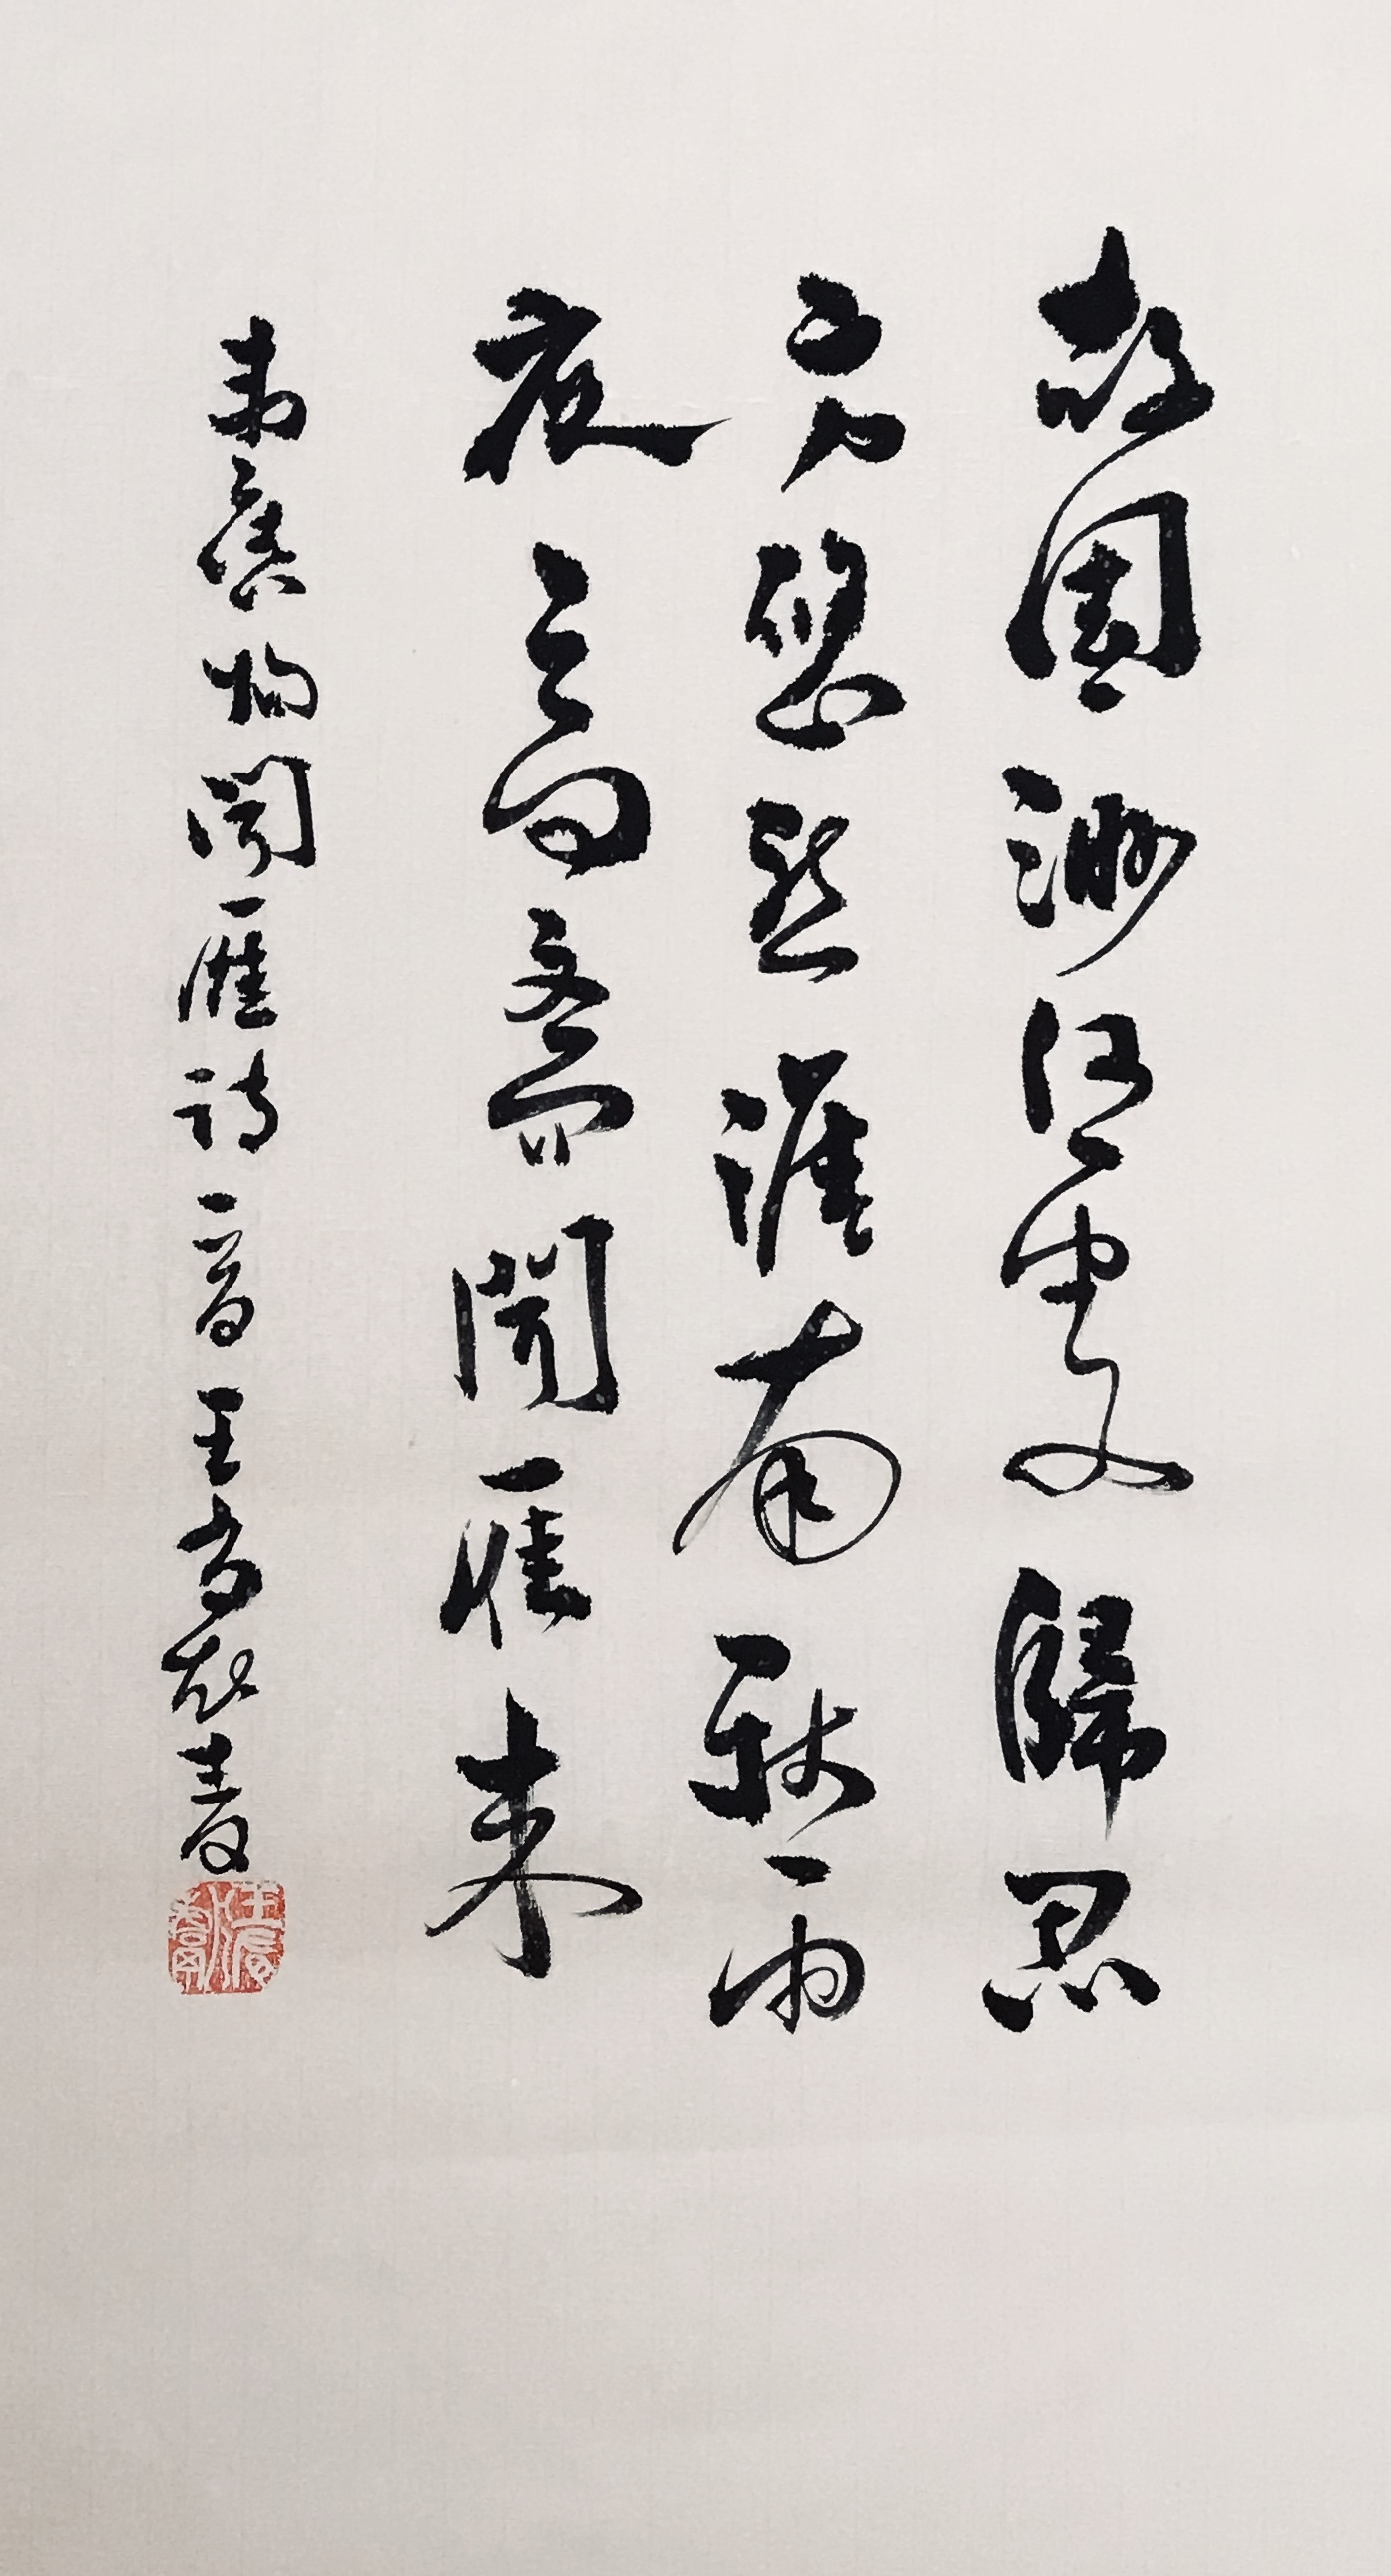 故園渺何處歸思
方悠哉淮南秋雨
夜高齋聞雁來
韋應物聞雁詩一首王